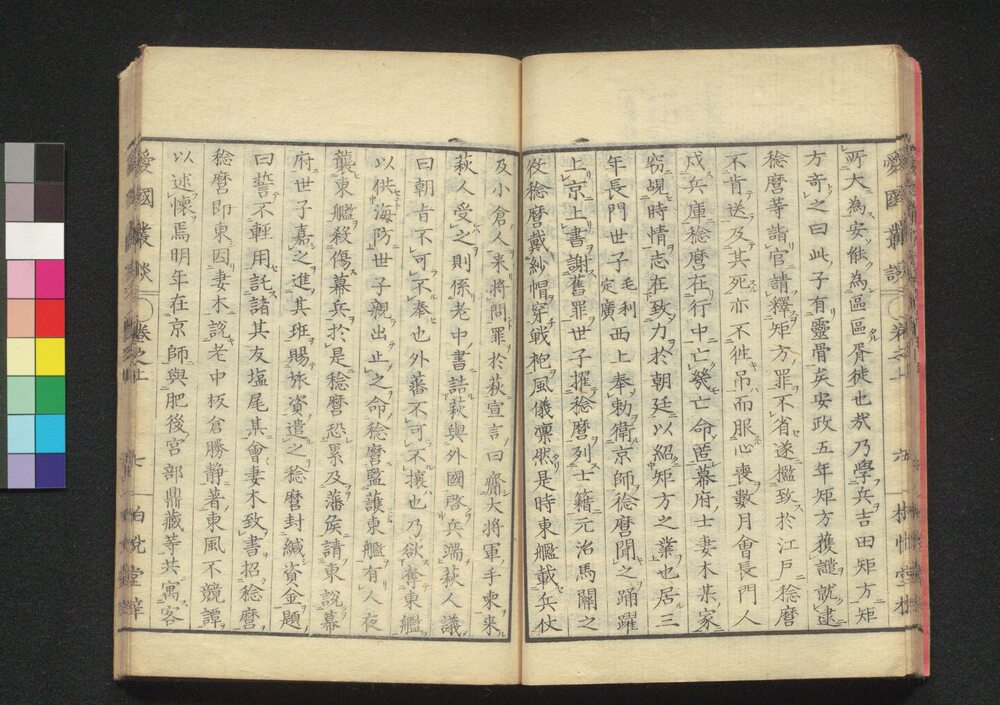 所大為安能為區區胥徒也哉乃學兵吉田矩方矩
方奇之曰此子有靈骨矣安政五年矩方獲譴就逮
稔麿等詣官請釋矩方罪不省遂檻致於江戶稔麿
不肯送及其死亦不徃吊而服心喪數月會長門人
戍兵庫稔麿在行中亡發亡命匿幕府士妻木某家
窃覘時情志在致力於朝廷以紹矩方之業也居三
年長門世子毛利定廣西上奉勅衛京師稔麿聞之踊躍
上京上書謝舊罪世子擢稔麿列士籍元治馬關之
役稔麿戴紗帽穿戰袍風儀凜然是時東艦載兵仗
及小倉人来將問罪於萩宣言曰齎大將軍手柬来
萩人受之則係老中書詰萩與外國啓兵端萩人議
曰朝旨不可不奉也外蕃不可不攘也乃欲奪東艦
以供海防世子親出止之命稔麿監護東艦有人夜
襲東艦殺傷幕兵於是稔麿恐累及藩矦請東說幕
府世子嘉之進其班賜旅資遣之稔麿封緘資金題
曰誓不輕用託諸其友塩尾某會妻木致書招稔麿
稔麿即東因妻木說老中板倉勝静著東風不競譚
以述懷焉明年在京師與肥後宮部鼎藏等共寓客
愛國叢談 卷之上 七